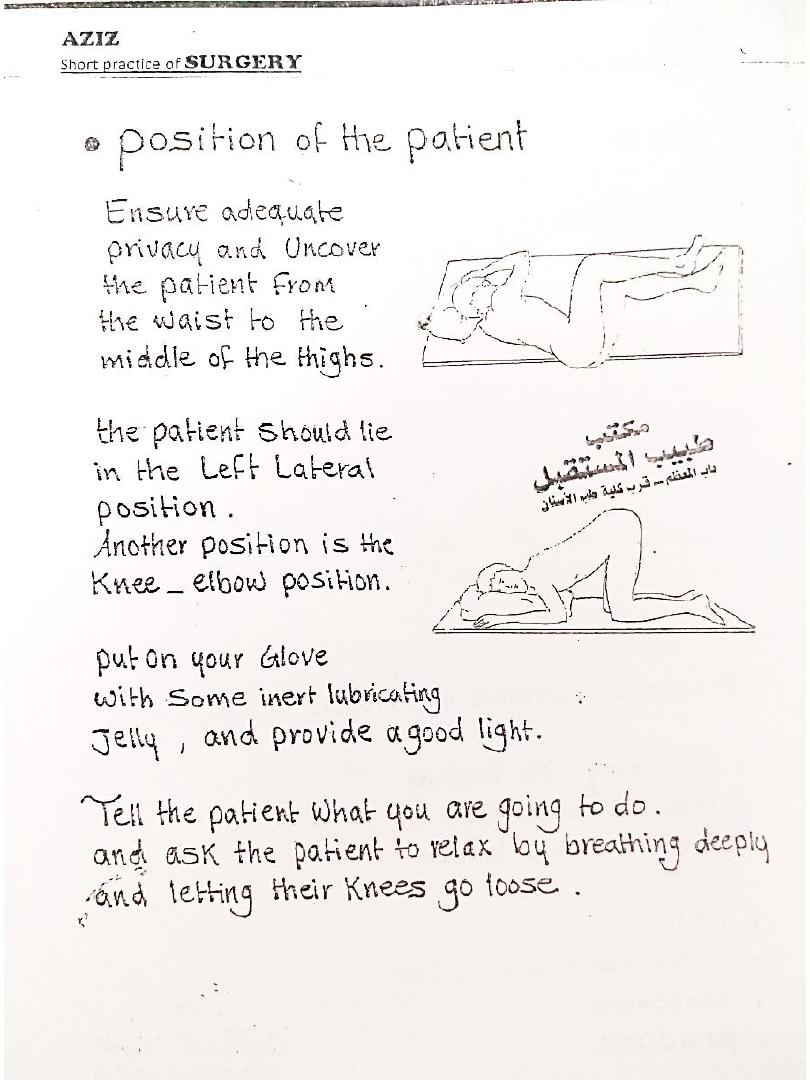 AZIZ
Short practice of SURGERY
• position of the patient
Ensure adequate
privacy and Uncover
the patient from
the waist to the
middle of the thighs.
the patient should lie
in the Left Lateral
position.
Another position is the
Knee_elbow position.
مكتب
طبيب المستقبل
باب المعظم - قرب كلية طب الأسنان
put on your Glove
with some inert lubricating
Jelly , and provide a good light.
Tell the patient what you are going to do.
and ask the patient to relax by breathing deeply
and letting their Knees go loose .